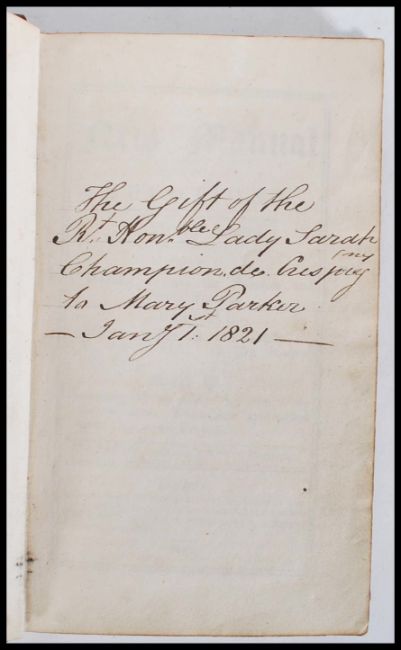 The Gift of the
Rt. Honble Lady Sarah
Champion de Crespigny
to Mary Parker
— Jany 1st 1821 —